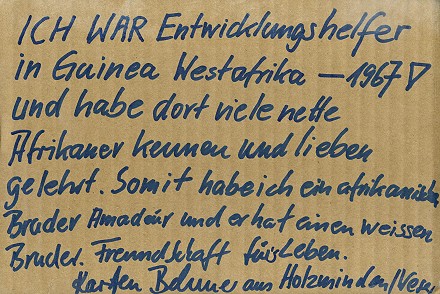 ICH WAR Entwicklungshelfer
in Guinea Westafrika – 1967
und habe dort viele nette
Afrikaner kennen und lieben
gelehrt. Somit habe ich ein afrikanischen
Bruder Amadou und er hat einen weissen
Bruder. Freundschaft fürs Leben.
Karsten aus Holzminden/